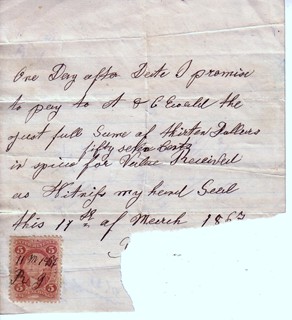 One Day after Date I promise
to pay to A & C Ewald the
just full Sume of thirten Dollers
fifty seven Centz
in spice for Value Received
as Witnifs my hand Seal
this 17th of March 186
5 5